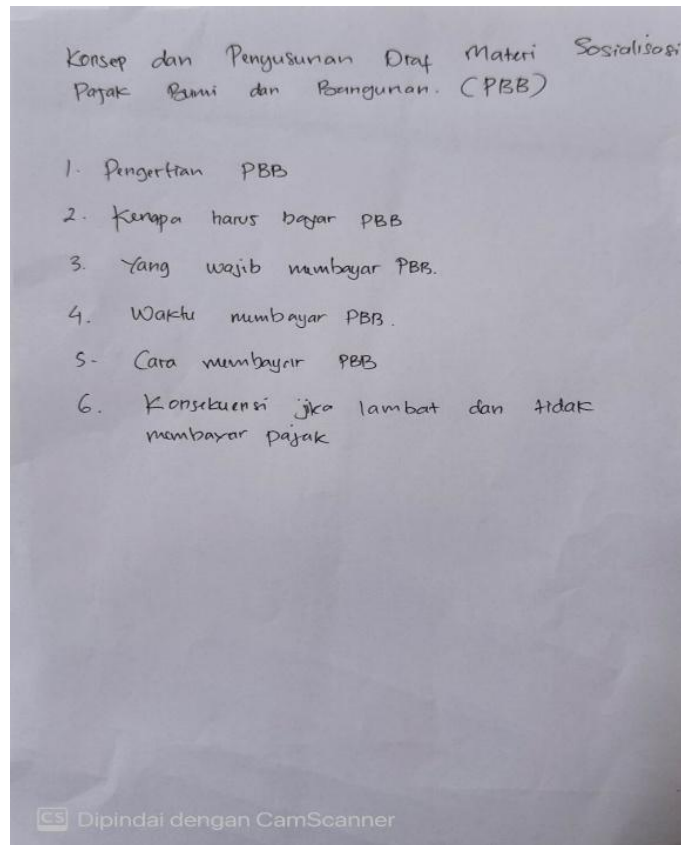 Konsep dan Penyusunan Draf Materi Sosialisasi
Pajak Bumi dan Bangunan. (PBB)
1. Pengertian PBB
2. Kenapa harus bayar PBB
3. Yang wajib membayar PBB.
4. Waktu membayar PBB.
5. Cara membayar PBB
6. Konsekuensi jika lambat dan tidak
membayar pajak
CS Dipindai dengan CamScanner